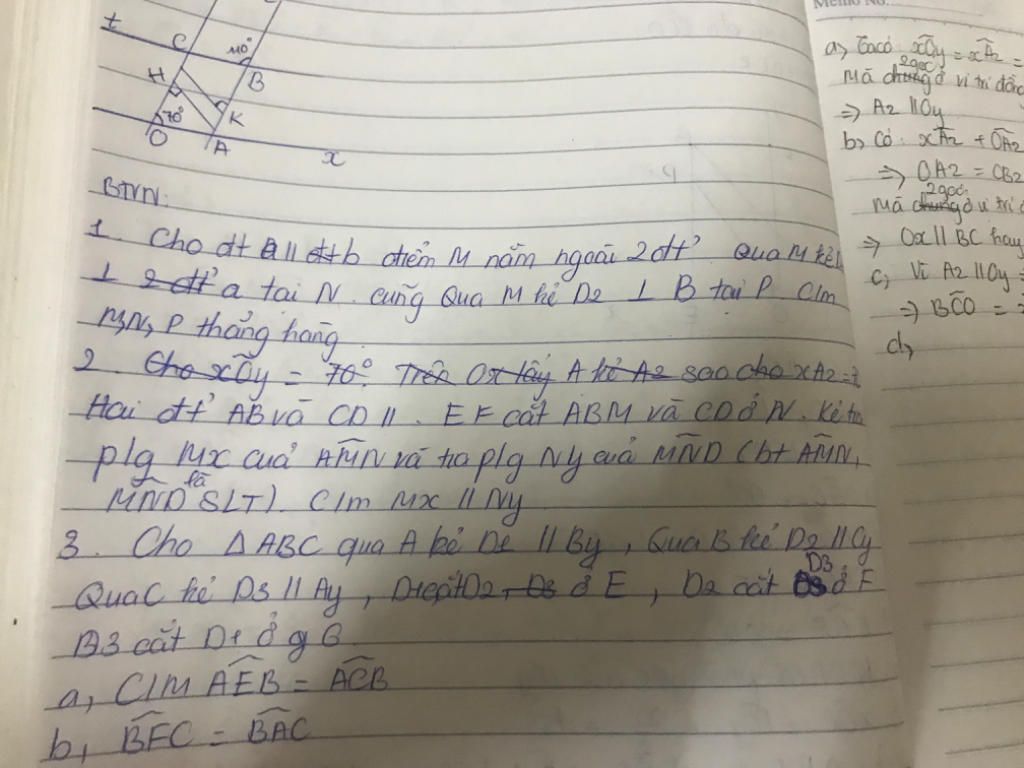 t
C
110°
B
H
K
70°
O
A
x
BTVN.
1. Cho đt a // đt b điểm M nằm ngoài 2 đt' Qua M kẻ
⊥ 2 đt' a tại N. cũng Qua M kẻ D2 ⊥ B tại P. C/m
M, N, P thẳng hàng.
2. Cho xOy = 70°. Trên Ox lấy A kẻ Az sao cho xAz =
Hai đt' AB và CD //. EF cắt ABM và CD ở N. Kẻ tia
p/g Mx của AMN và tia p/g Ny của MND (bt AMN,
MND là SLT). C/m Mx // Ny
3. Cho △ABC qua A kẻ D1 // By, Qua B kẻ D2 // Cy
Qua C kẻ D3 // Ay, D1 cắt D2, D3 ở E, D2 cắt D3 ở F
D3 cắt D1 ở g G
a, C/M AEB = ACB
b, BFC = BAC
Memo No.
a, Ta có xOy = xAz =
Mà chung 2 góc ở vị trí đồng
=> Az // Oy
b, Có: xAz + OAz
=> OAz = CBz
Mà chung 2 góc ở vị trí
=> Ox // BC hay
c, Vì Az // Oy =
=> BCO =
d,